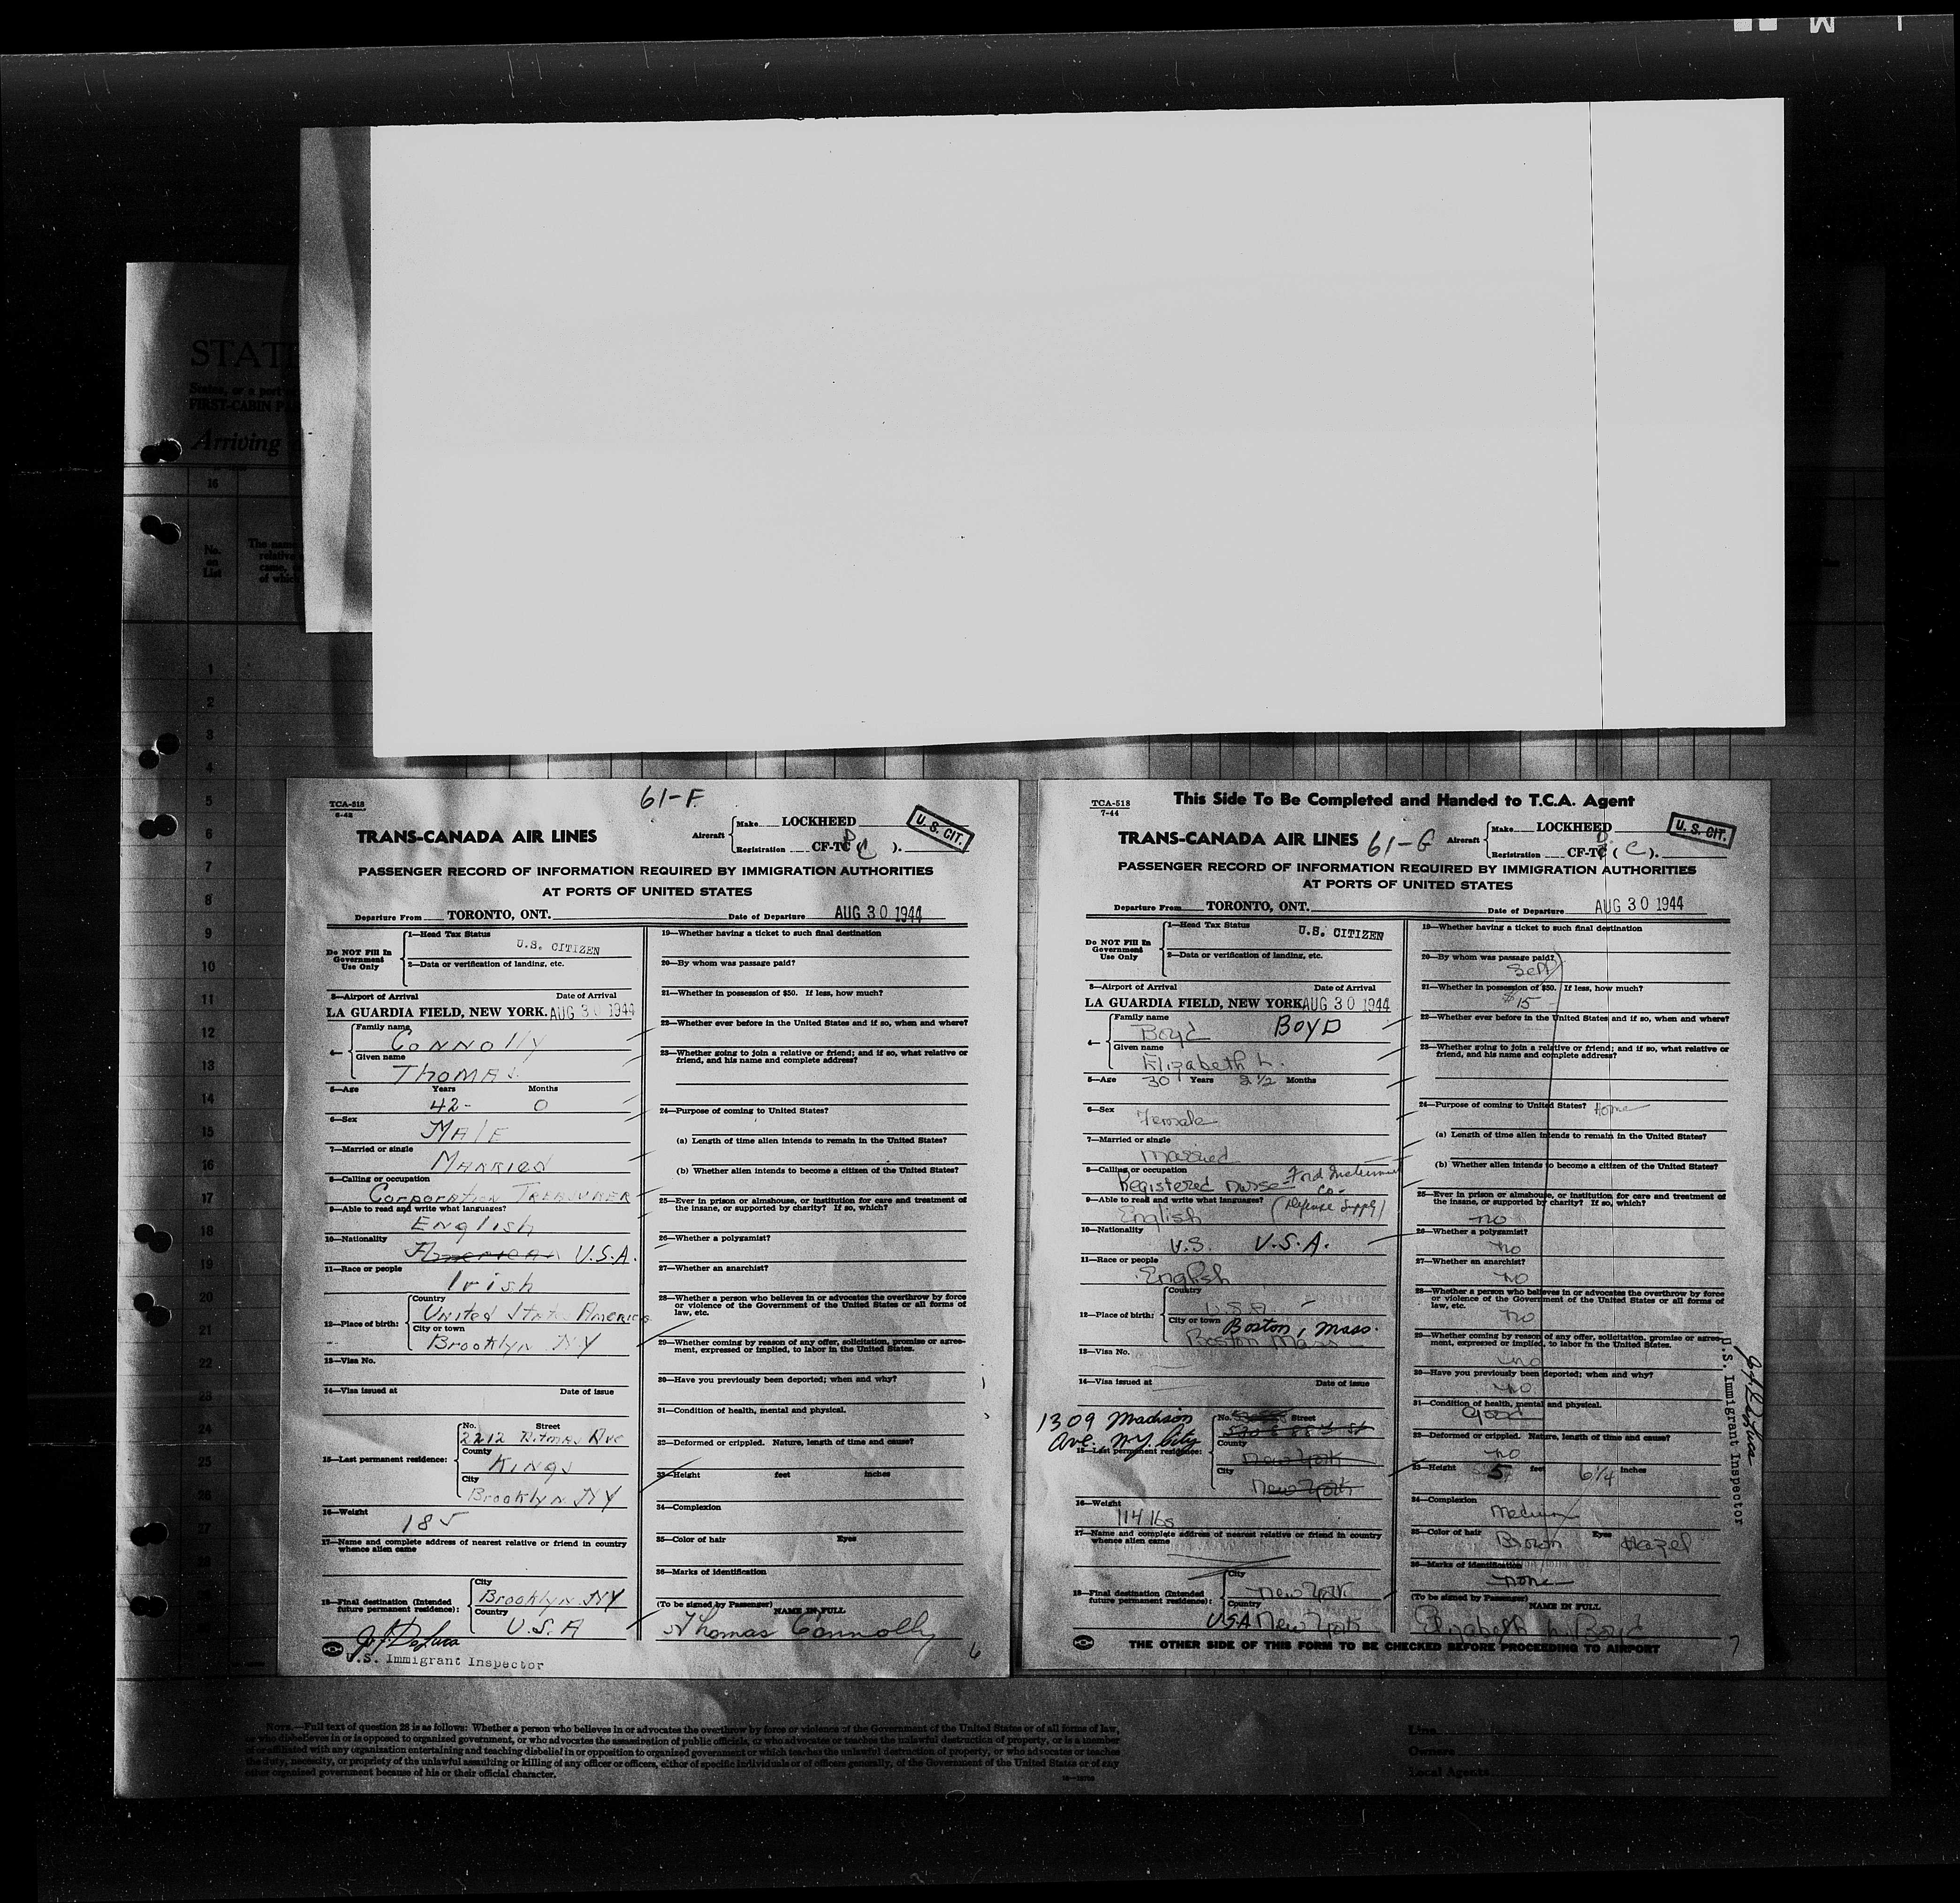 STATE
States, or a port
FIRST-CABIN PA
Arriving
16
No.
on
List
The name
relative
came,
of which
1
2
3
4
5
6
7
8
9
10
11
12
13
14
15
16
17
18
19
20
21
22
23
24
25
26
27
28
TCA-518
6-42
61-F
TRANS-CANADA AIR LINES
Aircraft
Make LOCKHEED
Registration CF-TC ( C ).
U. S. CIT.
PASSENGER RECORD OF INFORMATION REQUIRED BY IMMIGRATION AUTHORITIES
AT PORTS OF UNITED STATES
Departure From TORONTO, ONT. Date of Departure AUG 30 1944
Do NOT Fill In
Government
Use Only
1—Head Tax Status
U.S. CITIZEN
2—Data or verification of landing, etc.
3—Airport of Arrival Date of Arrival
LA GUARDIA FIELD, NEW YORK. AUG 30 1944
4— Family name
Connolly
Given name
Thomas
5—Age Years Months
42- 0
6—Sex
Male
7—Married or single
Married
8—Calling or occupation
Corporation Treasurer
9—Able to read and write what languages?
English
10—Nationality
American U.S.A.
11—Race or people
Irish
12—Place of birth:
Country
United States America
City or town
Brooklyn NY
13—Visa No.
14—Visa issued at Date of issue
15—Last permanent residence:
No. Street
2212 Ditmas Ave
County
Kings
City
Brooklyn NY
16—Weight
185
17—Name and complete address of nearest relative or friend in country
whence alien came
18—Final destination (Intended
future permanent residence):
City
Brooklyn NY
Country
U.S.A
U.S. Immigrant Inspector
19—Whether having a ticket to such final destination
20—By whom was passage paid?
21—Whether in possession of $50. If less, how much?
22—Whether ever before in the United States and if so, when and where?
23—Whether going to join a relative or friend; and if so, what relative or
friend, and his name and complete address?
24—Purpose of coming to United States?
(a) Length of time alien intends to remain in the United States?
(b) Whether alien intends to become a citizen of the United States?
25—Ever in prison or almshouse, or institution for care and treatment of
the insane, or supported by charity? If so, which?
26—Whether a polygamist?
27—Whether an anarchist?
28—Whether a person who believes in or advocates the overthrow by force
or violence of the Government of the United States or all forms of
law, etc.
29—Whether coming by reason of any offer, solicitation, promise or agree-
ment, expressed or implied, to labor in the United States.
30—Have you previously been deported; when and why?
31—Condition of health, mental and physical.
32—Deformed or crippled. Nature, length of time and cause?
33—Height feet inches
34—Complexion
35—Color of hair Eyes
36—Marks of identification
(To be signed by Passenger) NAME IN FULL
Thomas Connolly
6
TCA-518
7-44
This Side To Be Completed and Handed to T.C.A. Agent
TRANS-CANADA AIR LINES 61-G
Aircraft
Make LOCKHEED
Registration CF-TC ( C ).
U. S. CIT.
PASSENGER RECORD OF INFORMATION REQUIRED BY IMMIGRATION AUTHORITIES
AT PORTS OF UNITED STATES
Departure From TORONTO, ONT. Date of Departure AUG 30 1944
Do NOT Fill In
Government
Use Only
1—Head Tax Status
U.S. CITIZEN
2—Data or verification of landing, etc.
3—Airport of Arrival Date of Arrival
LA GUARDIA FIELD, NEW YORK AUG 30 1944
4— Family name
Boyd BOYD
Given name
Elizabeth L.
5—Age 30 Years 2 1/2 Months
6—Sex
Female
7—Married or single
Married
8—Calling or occupation
Registered nurse
Co-
9—Able to read and write what languages?
English (Defense Supply)
10—Nationality
U.S. U.S.A.
11—Race or people
English
12—Place of birth:
Country
U.S.A.
City or town Boston, Mass.
Boston Mass
13—Visa No.
14—Visa issued at Date of issue
1309 Madison
Ave. N.Y. City
15—Last permanent residence:
No. Street
County
New York
City
New York
16—Weight
114 lbs
17—Name and complete address of nearest relative or friend in country
whence alien came
18—Final destination (Intended
future permanent residence):
City
New York
Country
USA New York
19—Whether having a ticket to such final destination
20—By whom was passage paid?
Self
21—Whether in possession of $50. If less, how much?
$15
22—Whether ever before in the United States and if so, when and where?
23—Whether going to join a relative or friend; and if so, what relative or
friend, and his name and complete address?
24—Purpose of coming to United States? Home
(a) Length of time alien intends to remain in the United States?
(b) Whether alien intends to become a citizen of the United States?
25—Ever in prison or almshouse, or institution for care and treatment of
the insane, or supported by charity? If so, which?
no
26—Whether a polygamist?
no
27—Whether an anarchist?
no
28—Whether a person who believes in or advocates the overthrow by force
or violence of the Government of the United States or all forms of
law, etc.
no
29—Whether coming by reason of any offer, solicitation, promise or agree-
ment, expressed or implied, to labor in the United States.
no
30—Have you previously been deported; when and why?
no
31—Condition of health, mental and physical.
Good
32—Deformed or crippled. Nature, length of time and cause?
no
33—Height 5 feet 6 1/4 inches
34—Complexion
Medium
35—Color of hair Eyes
Brown Hazel
36—Marks of identification
none
(To be signed by Passenger) NAME IN FULL
Elizabeth L. Boyd
THE OTHER SIDE OF THIS FORM TO BE CHECKED BEFORE PROCEEDING TO AIRPORT
7
U.S. Immigrant Inspector
NOTE.—Full text of question 28 is as follows: Whether a person who believes in or advocates the overthrow by force or violence of the Government of the United States or of all forms of law,
or who disbelieves in or is opposed to organized government, or who advocates the assassination of public officials, or who advocates or teaches the unlawful destruction of property, or is a member
of or affiliated with any organization entertaining and teaching disbelief in or opposition to organized government or which teaches the unlawful destruction of property, or who advocates or teaches
the duty, necessity, or propriety of the unlawful assaulting or killing of any officer or officers, either of specific individuals or of officers generally, of the Government of the United States or of any
other organized government because of his or their official character.
Line
Owners
Local Agents